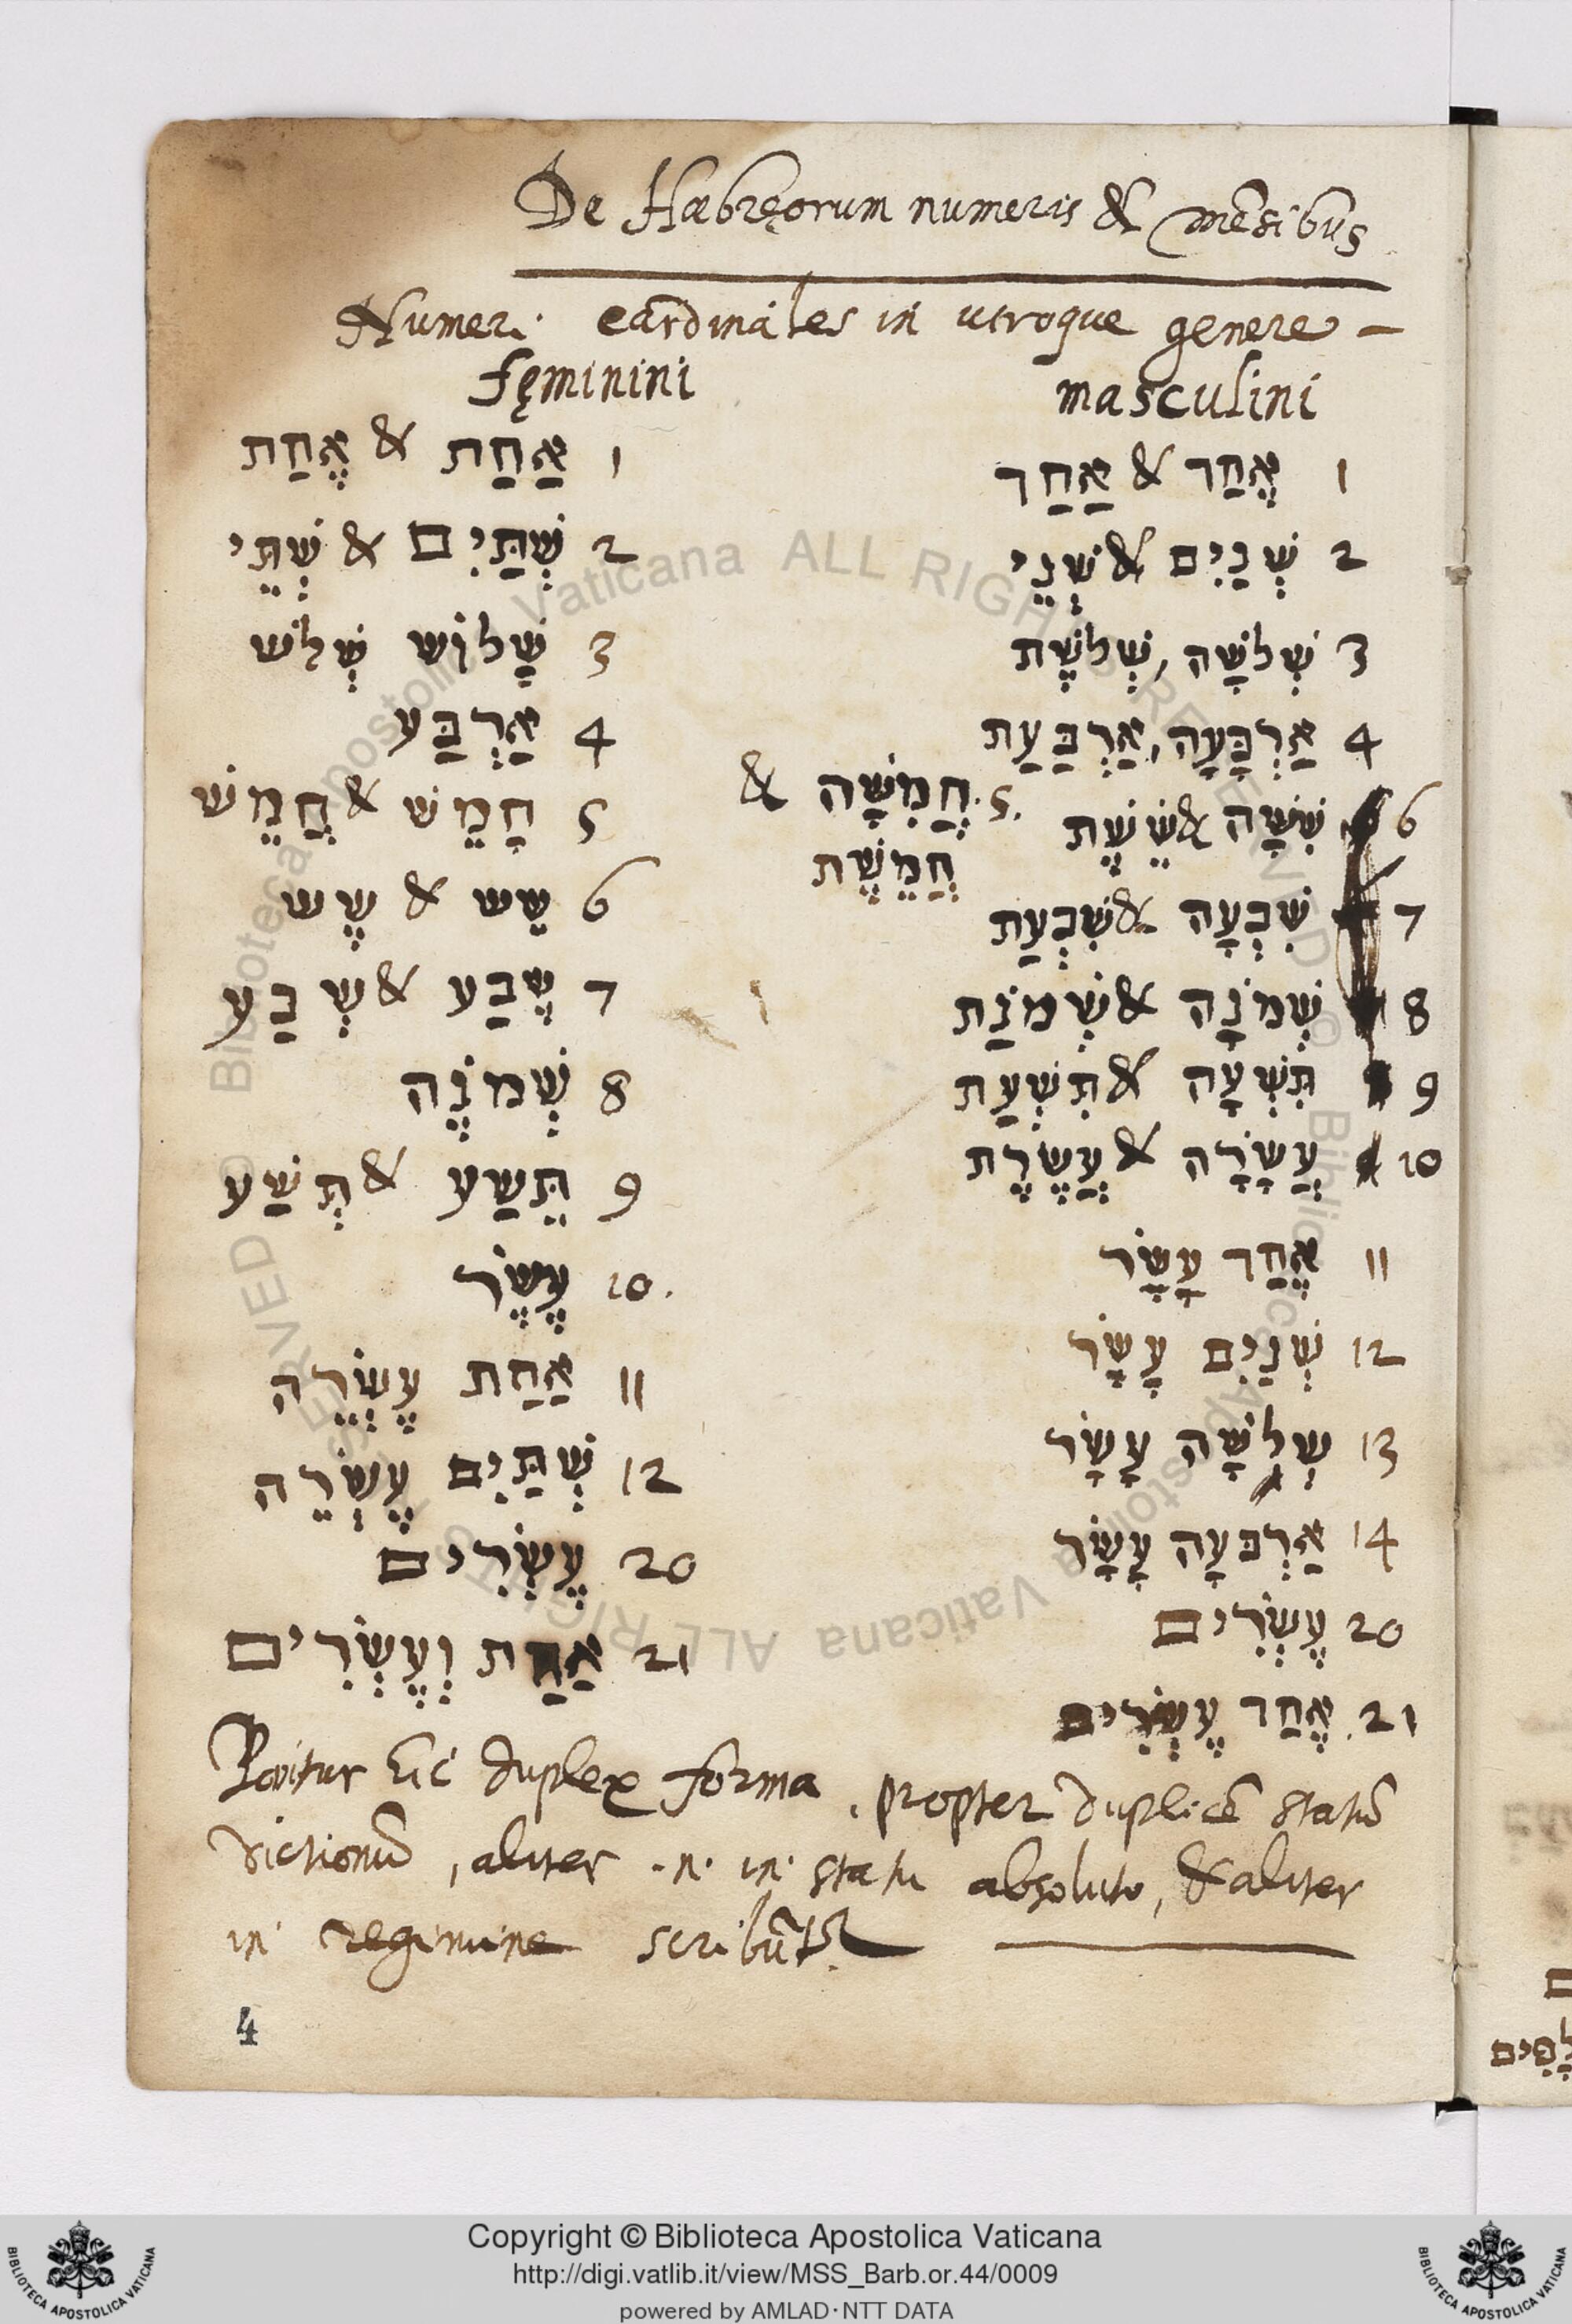 De Hæbręorum numeris & mẽsibus
Numeri cardinales in utroque genere —
masculini
1 אֶחַד & אַחַד
2 שְׁנַיִם & שְׁנֵי
3 שְׁלֹשָׁה, שְׁלֹשֶׁת
4 אַרְבָּעָה, אַרְבַּעַת
5. חֲמִשָׁה &
חֲמֵשֶׁת
6 שִׁשָׁה & שֵׁשֶׁת
7 שִׁבְעָה & שִׁבְעַת
8 שְׁמֹנָה & שְׁמֹנַת
9 תִּשְׁעָה & תִּשְׁעַת
10 עֲשָׂרָה & עֲשֶׂרֶת
11 אֶחַד עָשָׂר
12 שְׁנַיִם עָשָׂר
13 שְׁלֹשָׁה עָשָׂר
14 אַרְבּעָה עָשָׂר
20 עֶשְׂרִים
21. אֶחַד עֶשְׂרִים
fęminini
1 אַחַת & אֶחַת
2 שְׁתַּיִם & שְׁתֵּי
3 שָׁלוֹש שְׁלֹש
4 אַרְבַּע
5 חָמֵשׁ & חֲמֵשׁ
6 שֵׁש & שֶׁש
7 שֶׁבַע & שְׁבַע
8 שְׁמֹנֶה
9 תֵּשַׁע & תְּשַׁע
10. עֶשֶׂר
11 אַחַת עֶשְׂרֵה
12 שְׁתַּיִם עֶשְׂרֵה
20 עֶשְׂרִים
21 אַחַת וְעֶשְׂרִים
Ponitur duplex forma, propter duplicẽ statũ
dictionũ, aliter .n. in statu absoluto, & aliter
in regimine scribũtr
4
ם
לָפִים
Biblioteca Apostolica Vaticana ALL RIGHTS RESERVED ©
Copyright © Biblioteca Apostolica Vaticana
http://digi.vatlib.it/view/MSS_Barb.or.44/0009
powered by AMLAD·NTT DATA
BIBLIOTECA APOSTOLICA VATICANA
BIBLIOTECA APOSTOLICA VATICANA